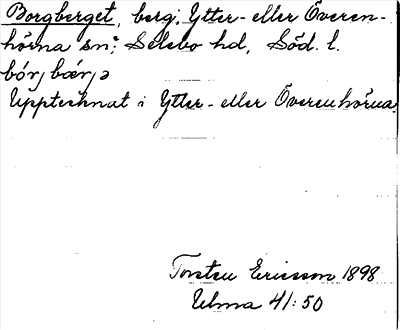 Borgberget, berg; Ytter- eller Överen-
hörna sn; Selebo hd, Söd. l.
bórj bærjə
Upptecknat i Ytter- eller Överenhörna.
Torsten Ericsson 1898
Ulma 41:50